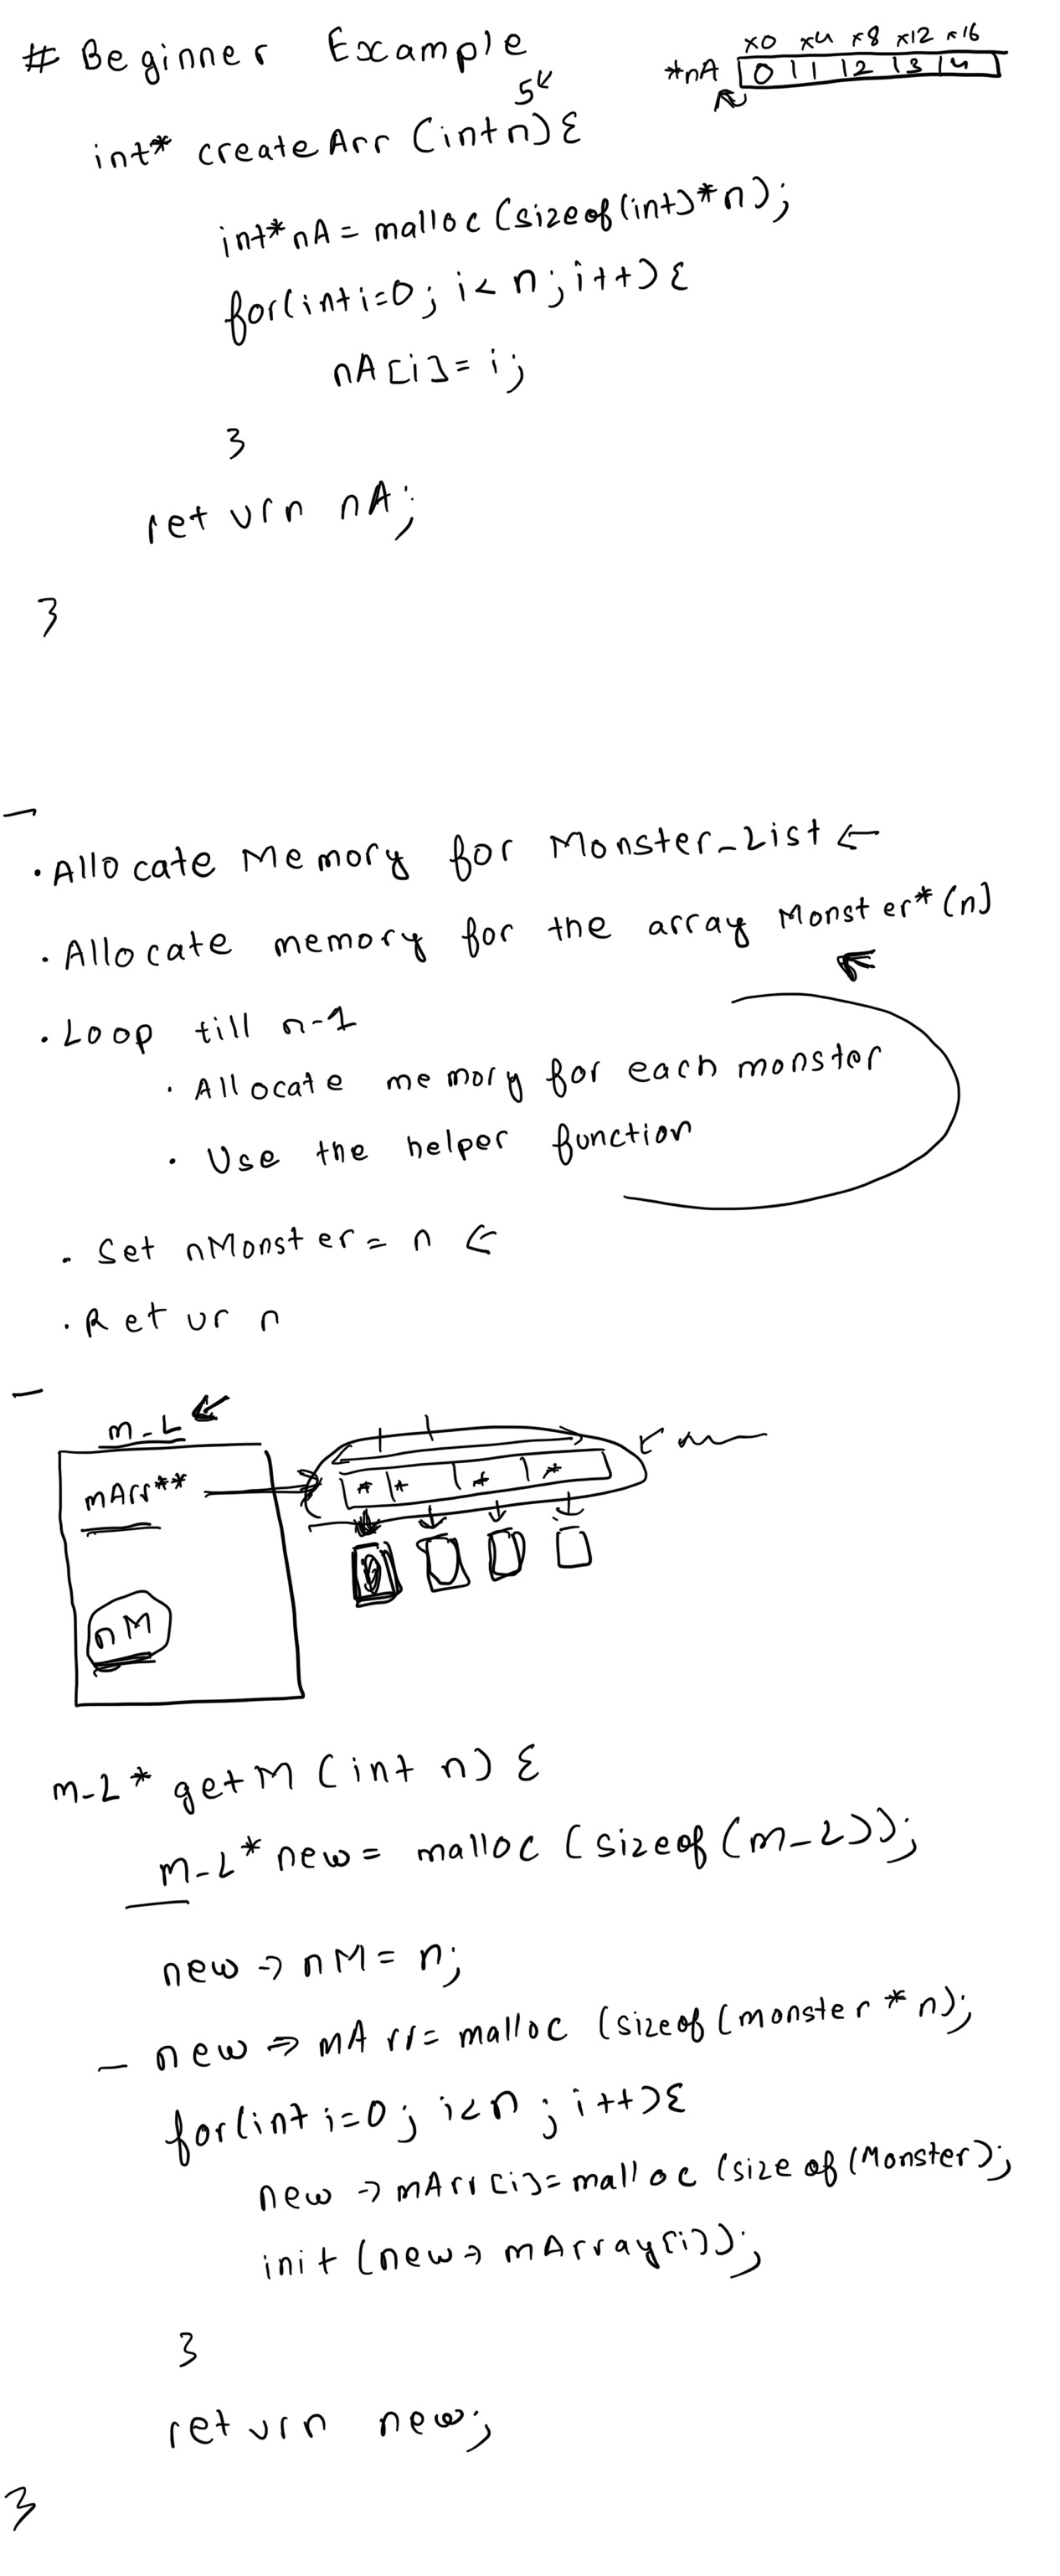 # Beginner Example
x0 x4 x8 x12 x16
*nA 0 1 2 3 4
5
int* createArr (int n) {
int* nA = malloc (sizeof(int) * n);
for(int i=0; i< n; i++) {
nA[i] = i;
}
return nA;
}
. Allocate Memory for Monster_List ←
. Allocate memory for the array Monster* (n)
. Loop till n-1
. Allocate memory for each monster
. Use the helper function
. Set nMonster = n ←
. Return
m_L
mArr** * * * *
nM
m_L * getM (int n) {
m_L * new = malloc (sizeof (m_L));
new → nM = n;
- new → mArr = malloc (sizeof (monster * n);
for(int i=0; i<n; i++) {
new → mArr[i] = malloc (size of (Monster);
init (new → mArray[i]);
}
return new;
}